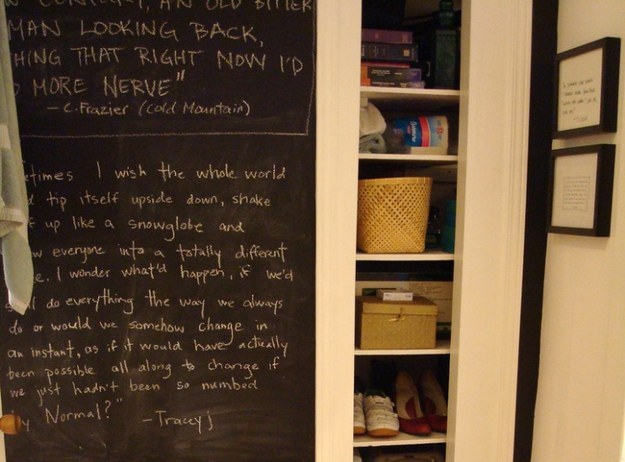 CENTURY, AN OLD BITTER
MAN LOOKING BACK,
HING THAT RIGHT NOW I'D
MORE NERVE"
—C. Frazier (Cold Mountain)
etimes I wish the whole world
d tip itself upside down, shake
f up like a snowglobe and
w everyone into a totally different
e. I wonder what'd happen, if we'd
l do everything the way we always
do or would we somehow change in
an instant, as if it would have actually
been possible all along to change if
we just hadn't been so numbed
y Normal?" —Tracey j